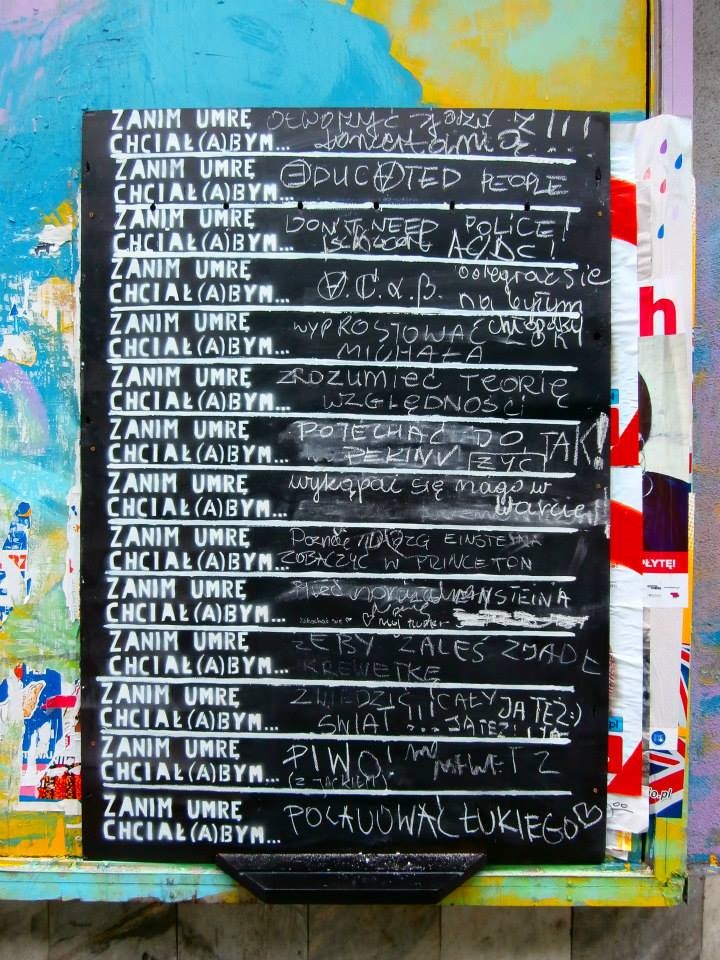 ZANIM UMRĘ OTWORZYĆ Z!!!
CHCIAŁ(A)BYM...
ZANIM UMRĘ
CHCIAŁ(A)BYM... EDUCATED PEOPLE
ZANIM UMRĘ DON'T NEED POLICE!
CHCIAŁ(A)BYM... AC/DC!
ZANIM UMRĘ odegrać się
CHCIAŁ(A)BYM... na byłym
chłopaku
ZANIM UMRĘ WYPROSTOWAĆ
CHCIAŁ(A)BYM... MICHAŁA
ZANIM UMRĘ ZROZUMIEĆ TEORIĘ
CHCIAŁ(A)BYM... WZGLĘDNOŚCI
ZANIM UMRĘ POJECHAĆ DO TAK!
CHCIAŁ(A)BYM... PEKINU ŻYĆ
ZANIM UMRĘ wykąpać się nago w
CHCIAŁ(A)BYM... Warcie
ZANIM UMRĘ MÓZG EINSTEINA
CHCIAŁ(A)BYM... ZOBACZYĆ W PRINCETON
ZANIM UMRĘ
CHCIAŁ(A)BYM...
ZANIM UMRĘ ŻEBY ZALEŚ ZJADŁ
CHCIAŁ(A)BYM... KREWETKĘ
ZANIM UMRĘ ZWIEDZIĆ CAŁY JA TEŻ :)
CHCIAŁ(A)BYM... ŚWIAT!!! ... JA TEŻ!
ZANIM UMRĘ PIWO!
CHCIAŁ(A)BYM... (Z JACKIEM)
ZANIM UMRĘ
CHCIAŁ(A)BYM... POCAŁOWAĆ ŁUKIEGO
h
ŁYTĘ!
o.pl